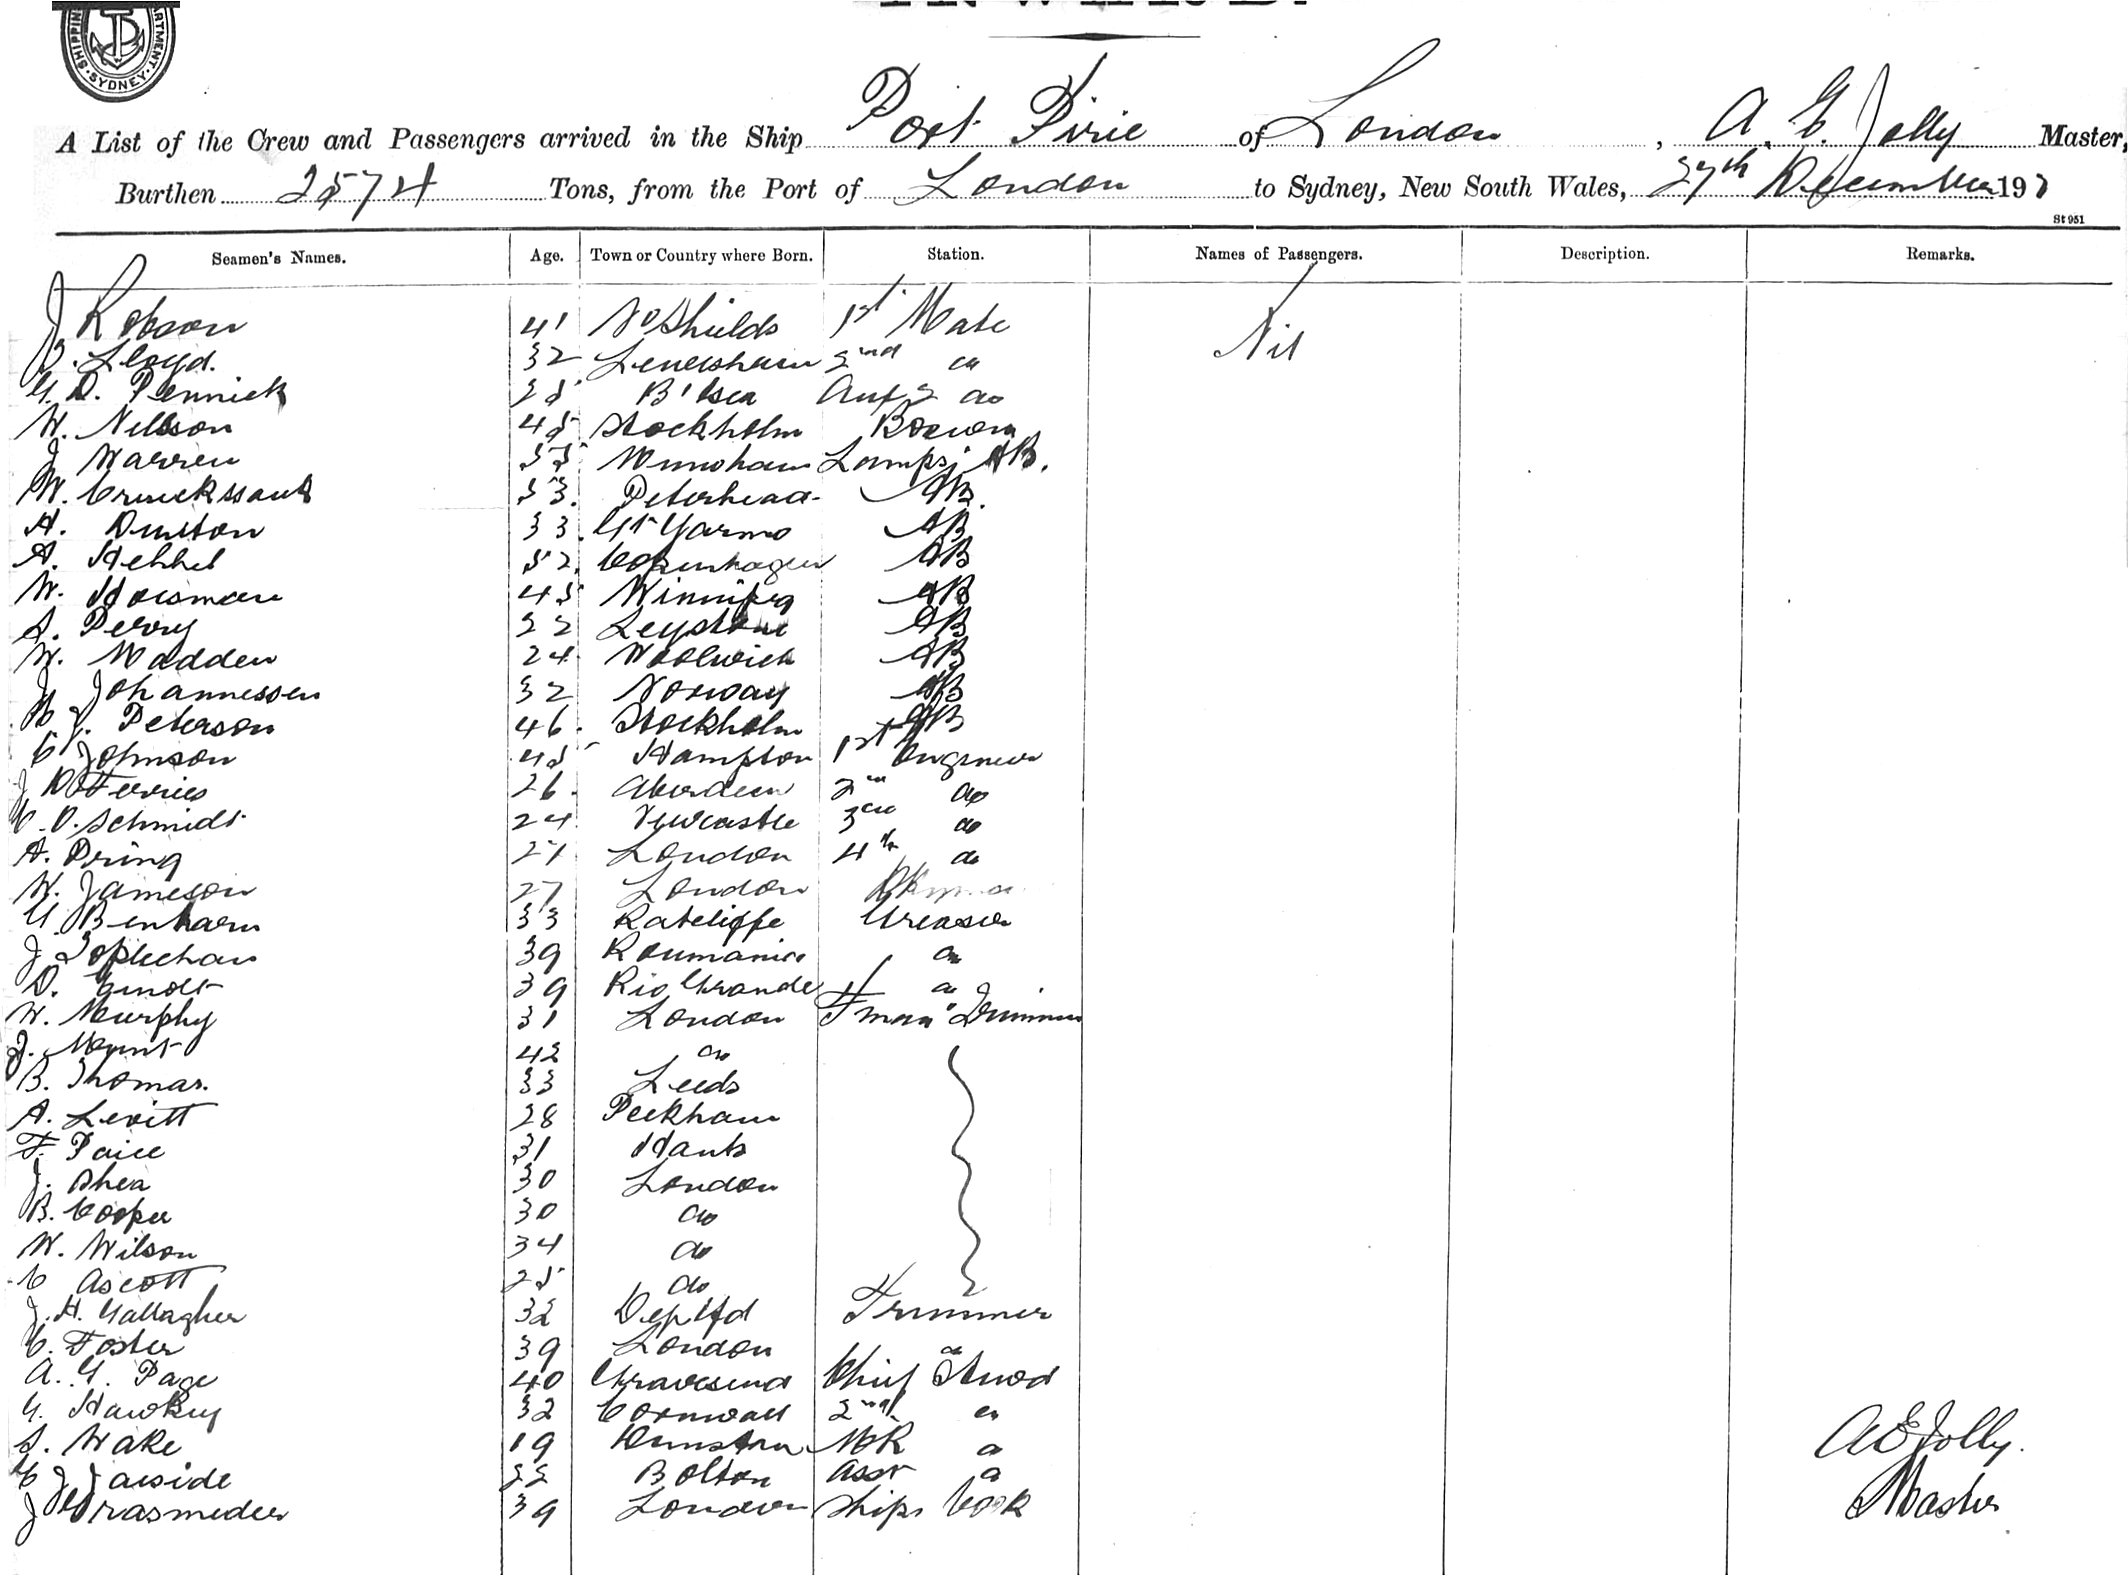 SHIPPING DEPARTMENT SYDNEY
A List of the Crew and Passengers arrived in the Ship Port Pirie of London, A. E. Jolly Master,
Burthen 2574 Tons, from the Port of London to Sydney, New South Wales, 27th December 191
St 951
Seamen's Names. Age. Town or Country where Born. Station. Names of Passengers. Description. Remarks.
J Robson 41 No Shields 1st Mate Nil
Lloyd. 32 2nd do
G. D. Pennick 25 do
W. Nilsson 45 Stockholm
J Warren 55 Lamps AB.
W. Cruickshank 53. Peterhead AB.
A. Dunton 33. Gt Yarmo AB
A. 52. Copenhagen AB
W. Horsman 45 Winnipeg AB
S. Perry 22 AB
W. Madden 24 Woolwich AB
J Johannessen 32 Norway AB
J. Peterson 46. Stockholm AB
C Johnson 45 Hampton 1st Engineer
J D Ferries 26. Aberdeen 2nd do
C. D. Schmidt 24 Newcastle 3rd do
A. Pring 27 London 4th do
W. Jameson 27 London
G. Benham 33 Ratcliffe Greaser
J 39 Roumania do
D. 39 Rio Grande do
W. Murphy 31 London Fman Trimmer
J. 42 do
B. Thomas. 33 Leeds
A. Levitt 28 Peckham
F. Paice 31 Hants
J. Shea 30 London
B. Cooper 30 do
W. Wilson 34 do
C Ascott 25 do
J. H. Gallagher 32 Deptfd Trimmer
C. Foster 39 London do
A. G. Page 40 Gravesend Chief Stewd
G. Hawkey 32 Cornwall 2nd do
S. Wake 19 do
C J 22 Bolton Asst do
J Grasmeder 39 London Ships Cook
A E Jolly.
Master